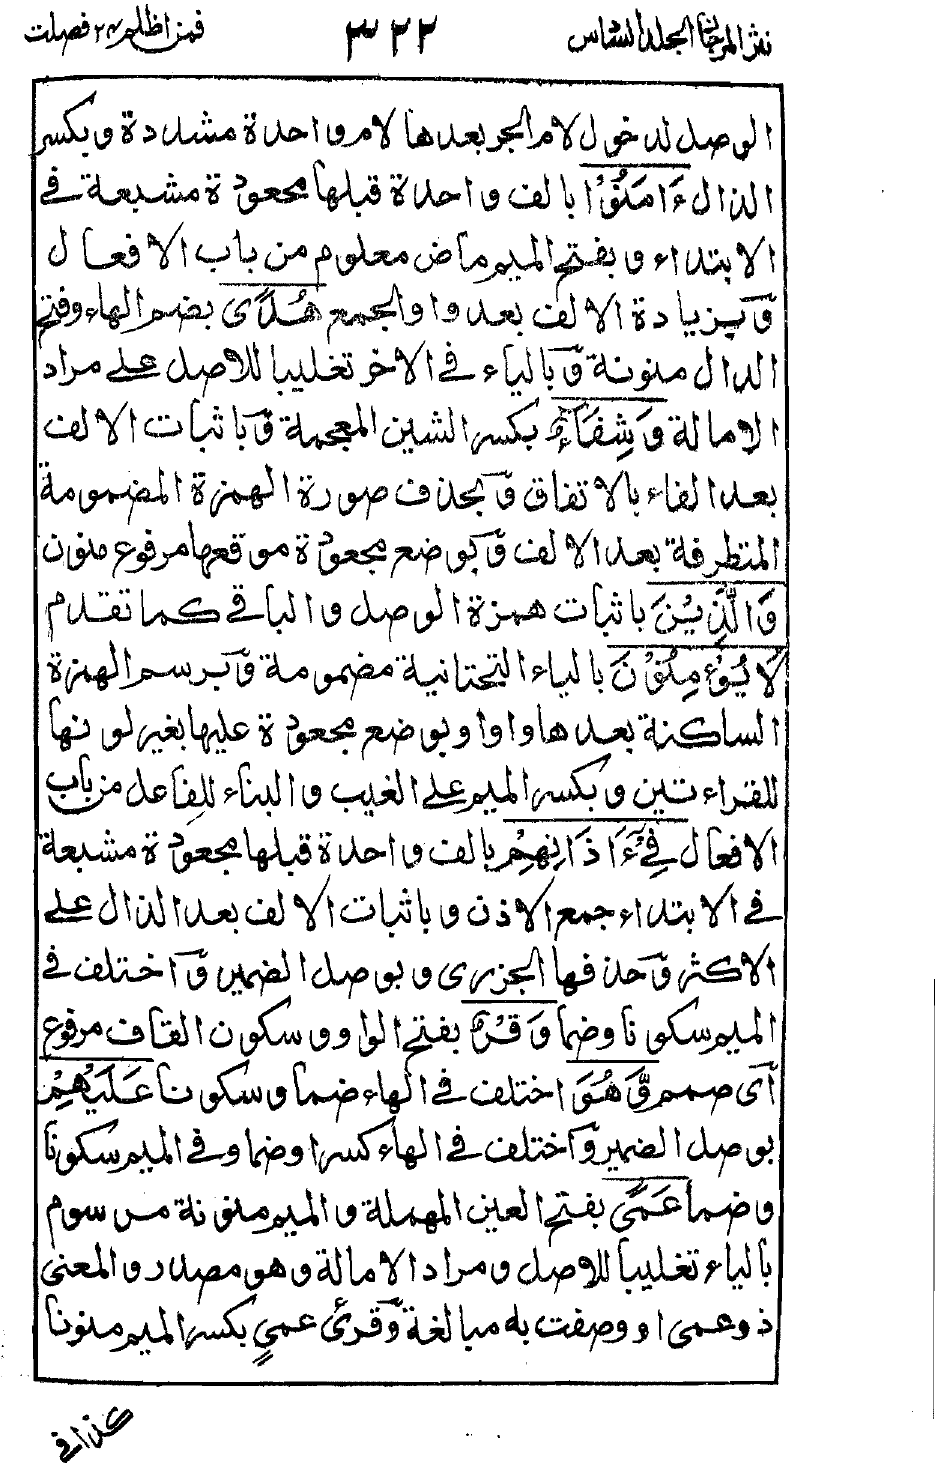 نثر المرجان المجلد السادس ٣٢٢ فمن اظلم ٢٤ فصلت
الوصل لدخول لام الجر بعدها لام واحدة مشددة وبكسر
الذال ءَامَنُوْا بالف واحدة قبلها مجعودة مشبعة في
الابتداء وبفتح الميم ماض معلوم من باب الافعال
وبزيادة الالف بعد واو الجمع هُدًى بضم الهاء وفتح
الدال منونة وبالياء في الاخر تغليبا للاصل على مراد
الامالة وَشِفَاءٌ بكسر الشين المعجمة وباثبات الالف
بعد الفاء بالاتفاق وبحذف صورة الهمزة المضمومة
المتطرفة بعد الالف وبوضع مجعودة موقعها مرفوع منون
وَالَّذِيْنَ باثبات همزة الوصل والباقي كما تقدم
لَا يُوْءمِنُوْنَ بالياء التحتانية مضمومة وبرسم الهمزة
الساكنة بعدها واوا وبوضع مجعودة عليها بغير لونها
للقراءتين وبكسر الميم على الغيب والبناء للفاعل من باب
الافعال فِيْ ءَاذَانِهِمْ بالف واحدة قبلها مجعودة مشبعة
في الابتداء جمع الاذن وباثبات الالف بعد الذال على
الاكثر وحذفها الجزرى وبوصل الضمير واختلف في
الميم سكونا وضما وَقْرٌ بفتح الواو وسكون القاف مرفوع
اى صمم وَّهُوَ اختلف في الهاء ضما وسكونا عَلَيْهِمْ
بوصل الضمير واختلف في الهاء كسرا وضما وفي الميم سكونا
وضما عَمًى بفتح العين المهملة والميم منونة مرسوم
بالياء تغليبا للاصل ومراد الامالة وهو مصدر والمعنى
ذو عمى او وصفت به مبالغة وقرئ عمٍي بكسر الميم منونا
كذا في